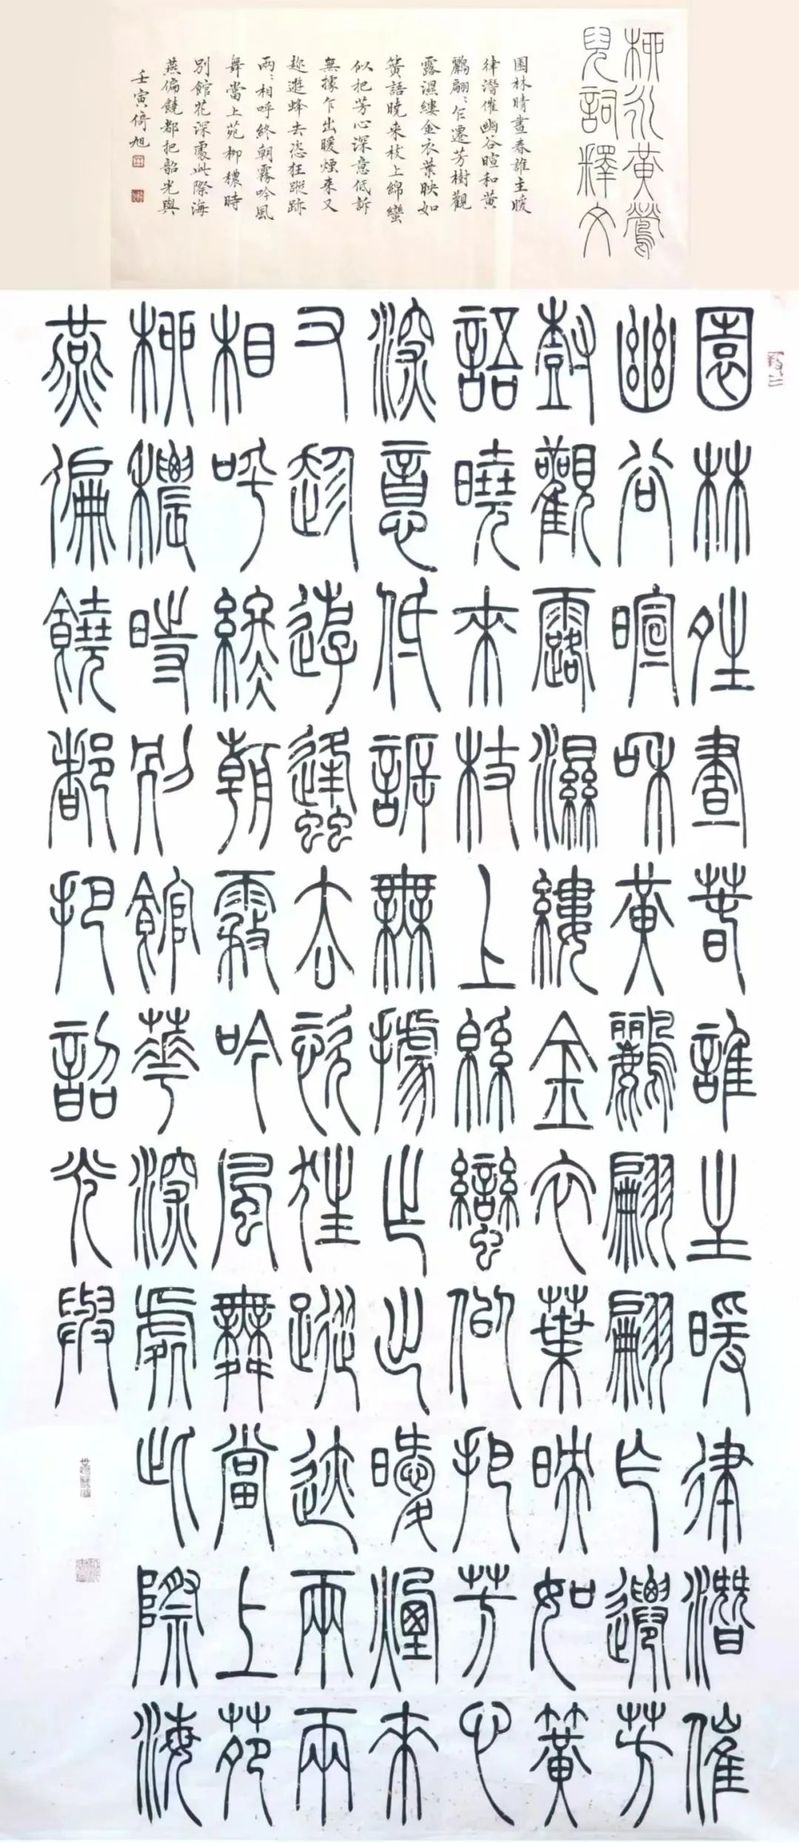 柳永黃鶯
兒詞釋文
園林晴晝春誰主暖
律潛催幽谷暄和黃
鸝翩〻乍遷芳樹觀
露濕縷金衣葉映如
簧語曉來枝上綿蠻
似把芳心深意低訴
無據乍出暖煙來又
趁遊蜂去恣狂蹤跡
兩〻相呼終朝霧吟風
舞當上苑柳穠時
別館花深處此際海
燕偏饒都把韶光與
壬寅倚旭
園林晴晝春誰主暖律潛催
幽谷暄和黃鸝翩翩乍遷芳
樹觀露濕縷金衣葉映如簧
語曉來枝上綿蠻似把芳心
深意低訴無據乍出暖煙來
又趁遊蜂去恣狂蹤跡兩兩
相呼終朝霧吟風舞當上苑
柳穠時別館華深處此際海
燕偏饒都把韶光與